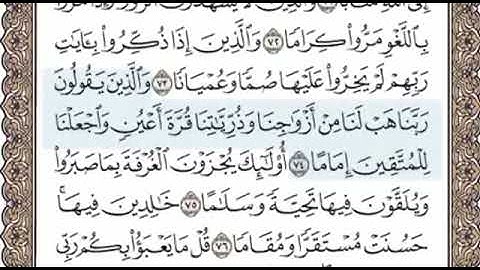 إِلَى ٱللَّهِ مَتَابًا ۝٧١ وَٱلَّذِينَ لَا يَشْهَدُونَ ٱلزُّورَ وَإِذَا مَرُّوا۟
بِٱللَّغْوِ مَرُّوا۟ كِرَامًا ۝٧٢ وَٱلَّذِينَ إِذَا ذُكِّرُوا۟ بِـَٔايَٰتِ
رَبِّهِمْ لَمْ يَخِرُّوا۟ عَلَيْهَا صُمًّا وَعُمْيَانًا ۝٧٣ وَٱلَّذِينَ يَقُولُونَ
رَبَّنَا هَبْ لَنَا مِنْ أَزْوَٰجِنَا وَذُرِّيَّٰتِنَا قُرَّةَ أَعْيُنٍ وَٱجْعَلْنَا
لِلْمُتَّقِينَ إِمَامًا ۝٧٤ أُو۟لَٰٓئِكَ يُجْزَوْنَ ٱلْغُرْفَةَ بِمَا صَبَرُوا۟
وَيُلَقَّوْنَ فِيهَا تَحِيَّةً وَسَلَٰمًا ۝٧٥ خَٰلِدِينَ فِيهَا ۚ
حَسُنَتْ مُسْتَقَرًّا وَمُقَامًا ۝٧٦ قُلْ مَا يَعْبَؤُا۟ بِكُمْ رَبِّى